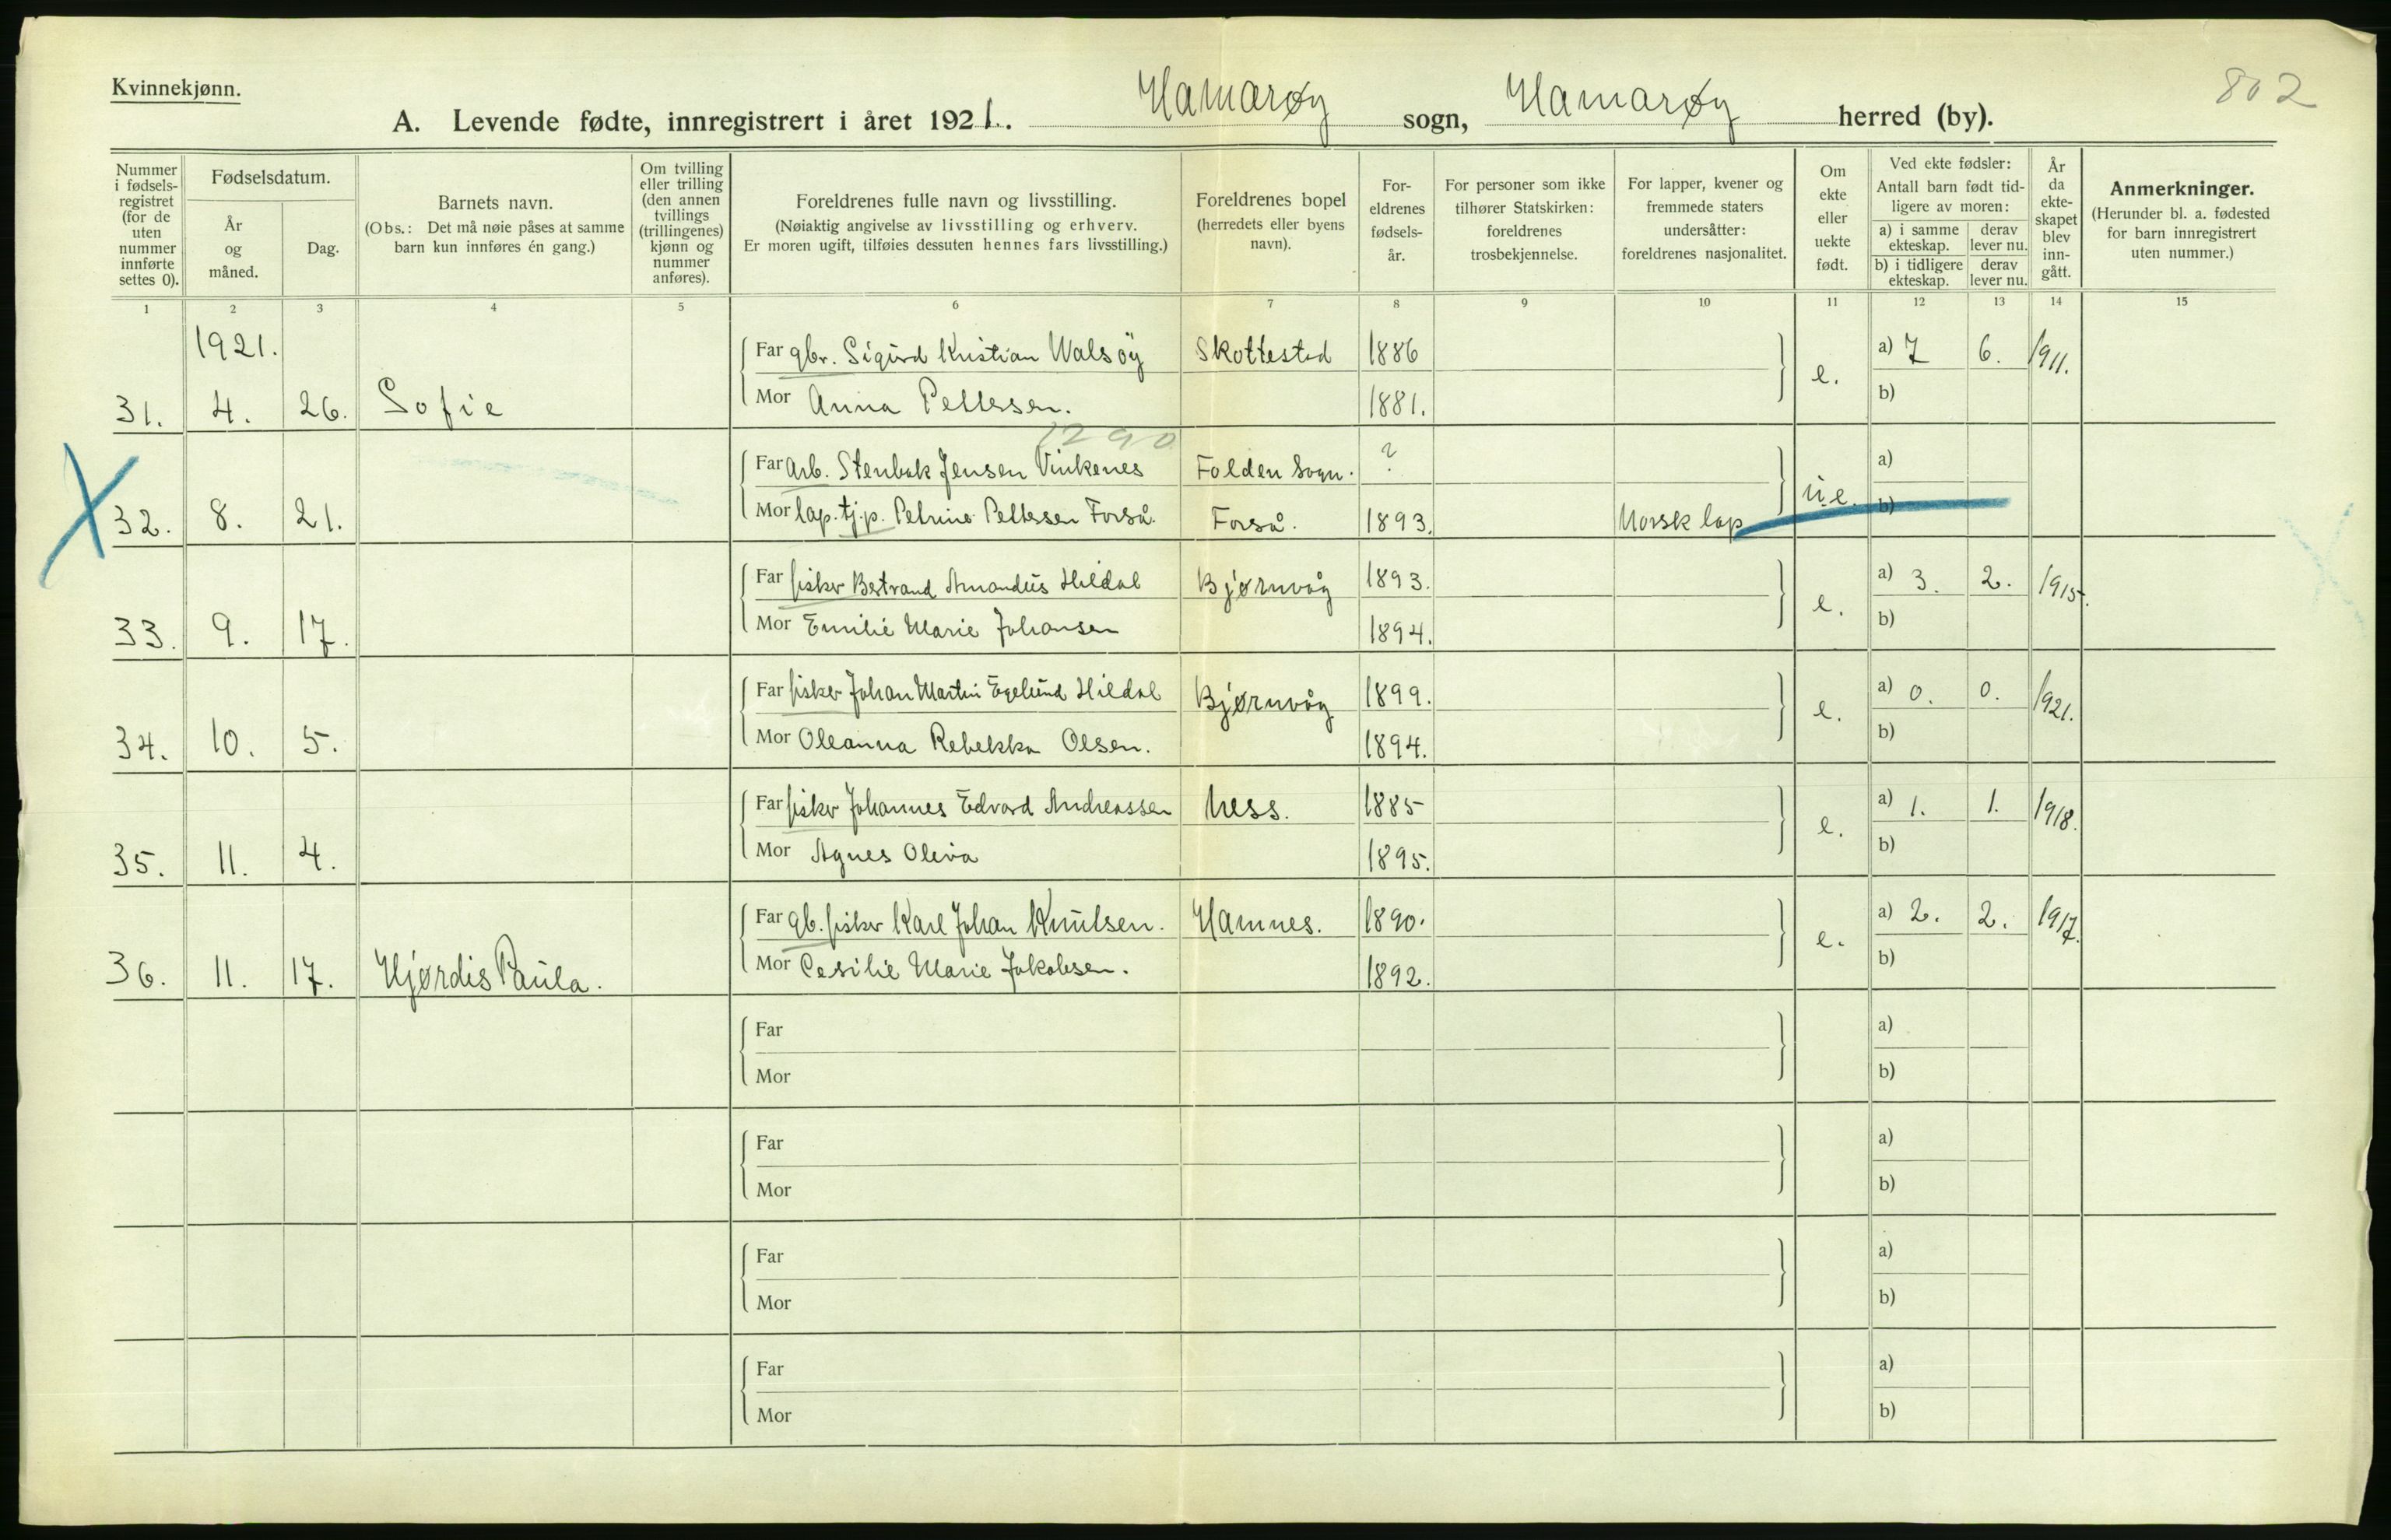 Kvinnekjønn.
802
A. Levende fødte, innregistrert i året 1921. Hamarøy sogn, Hamarøy herred (by).
Nummer i fødselsregistret (for de uten nummer innførte settes 0).
Fødselsdatum.
År og måned.
Dag.
Barnets navn.
(Obs.: Det må nøie påses at samme barn kun innføres én gang.)
Om tvilling eller trilling (den annen tvillings (trillingenes) kjønn og nummer anføres).
Foreldrenes fulle navn og livsstilling.
(Nøiaktig angivelse av livsstilling og erhverv.
Er moren ugift, tilføies dessuten hennes fars livsstilling.)
Foreldrenes bopel
(herredets eller byens navn).
Foreldrenes fødselsår.
For personer som ikke tilhører Statskirken: foreldrenes trosbekjennelse.
For lapper, kvener og fremmede staters undersåtter: foreldrenes nasjonalitet.
Om ekte eller uekte født.
Ved ekte fødsler:
Antall barn født tidligere av moren:
a) i samme ekteskap.
derav lever nu.
b) i tidligere ekteskap.
derav lever nu.
År da ekteskapet blev inngått.
Anmerkninger.
(Herunder bl. a. fødested for barn innregistrert uten nummer.)
1 2 3 4 5 6 7 8 9 10 11 12 13 14 15
1921.
Far gbr. Sigurd Kristian Walsøy Skottestad 1886 a) 7 6. 1911.
31. 4. 26. Sofie Mor Anna Pettersen. 1881. e. b)
1290
Far Arb. Stenbak Jensen Vinkenes Folden Sogn. ? a)
32. 8. 21. Mor lap. tj.p. Petrine Pettersen Forså. Forså. 1893. Norsk lap u.e. b)
Far fisker Bertrand Amandus Hildal Bjørnvåg 1893. a) 3. 2. 1915.
33. 9. 17. Mor Emilie Marie Johansen 1894. e. b)
Far fisker Johan Martin Egelund Hildal Bjørnvåg 1899. a) 0. 0. 1921.
34. 10. 5. Mor Oleanna Rebekka Olsen. 1894. e. b)
Far fisker Johannes Edvard Andreassen Ness. 1885 a) 1. 1. 1918.
35. 11. 4. Mor Agnes Oliva 1895. e. b)
Far gb. fisker Karl Johan Knutsen. Hamnes. 1890. a) 2. 2. 1917.
36. 11. 17. Hjørdis Paula. Mor Cesilie Marie Jakobsen. 1892. e. b)
Far a)
Mor b)
Far a)
Mor b)
Far a)
Mor b)
Far a)
Mor b)